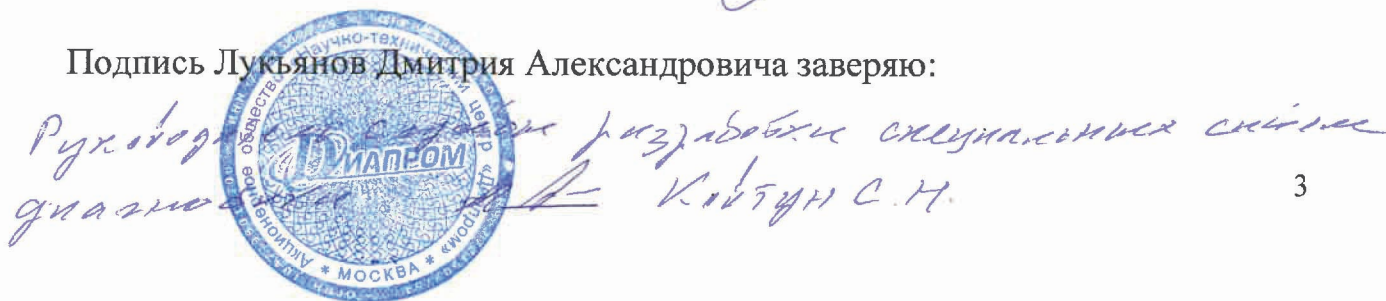 Подпись Лукьянов Дмитрия Александровича заверяю:
Руководитель службы разработки специальных систем
диагностики Ковтун С.Н.
3
Акционерное общество «Научно-технический центр «Диапром»
* МОСКВА *
ДИАПРОМ